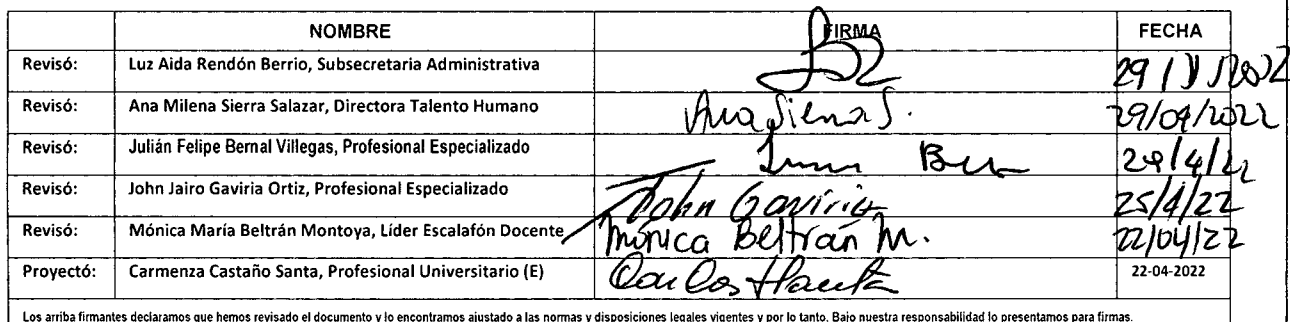 NOMBRE FIRMA FECHA
Revisó: Luz Aida Rendón Berrio, Subsecretaria Administrativa
Revisó: Ana Milena Sierra Salazar, Directora Talento Humano Ana Sierra S. 29/04/2022
Revisó: Julián Felipe Bernal Villegas, Profesional Especializado
Revisó: John Jairo Gaviria Ortiz, Profesional Especializado John Gaviria 25/4/22
Revisó: Mónica María Beltrán Montoya, Líder Escalafón Docente Mónica Beltrán M. 22/04/22
Proyectó: Carmenza Castaño Santa, Profesional Universitario (E) 22-04-2022
Los arriba firmantes declaramos que hemos revisado el documento y lo encontramos ajustado a las normas y disposiciones legales vigentes y por lo tanto, Bajo nuestra responsabilidad lo presentamos para firmas.